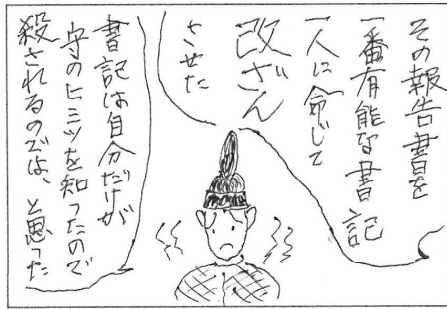 その報告書を
一番有能な書記
一人に命じて
改ざん
させた
書記は自分だけが
守のヒミツを知ったので
殺されるのでは、と思った